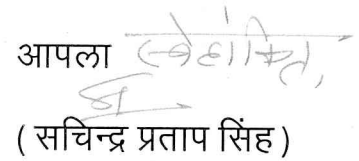 आपला स्नेहांकित,
( सचिन्द्र प्रताप सिंह )